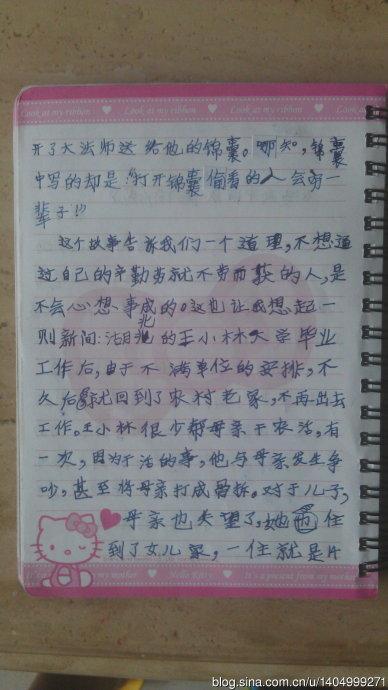 Look at my ribbon Look at my ribbon Look at my ribbon
开了大法师送给他的锦囊。哪知，锦囊
中写的却是："打开锦囊偷看的人会穷一
辈子！"
这个故事告诉我们一个道理，不想通
过自己的辛勤劳就不劳而获的人，是
不会心想事成的。这也让我想起一
则新闻：湖北的王小林大学毕业
工作后，由于不满单位的安排，不
久后就回到了农村老家，不再出去
工作。王小林很少帮母亲干农活，有
一次，因为干活的事，他与母亲发生争
吵，甚至将母亲打成骨折。对于儿子，
母亲也失望了，她住
到了女儿家，一住就是片
my mother Hello Kitty It's a present from my mother
blog.sina.com.cn/u/1404999271